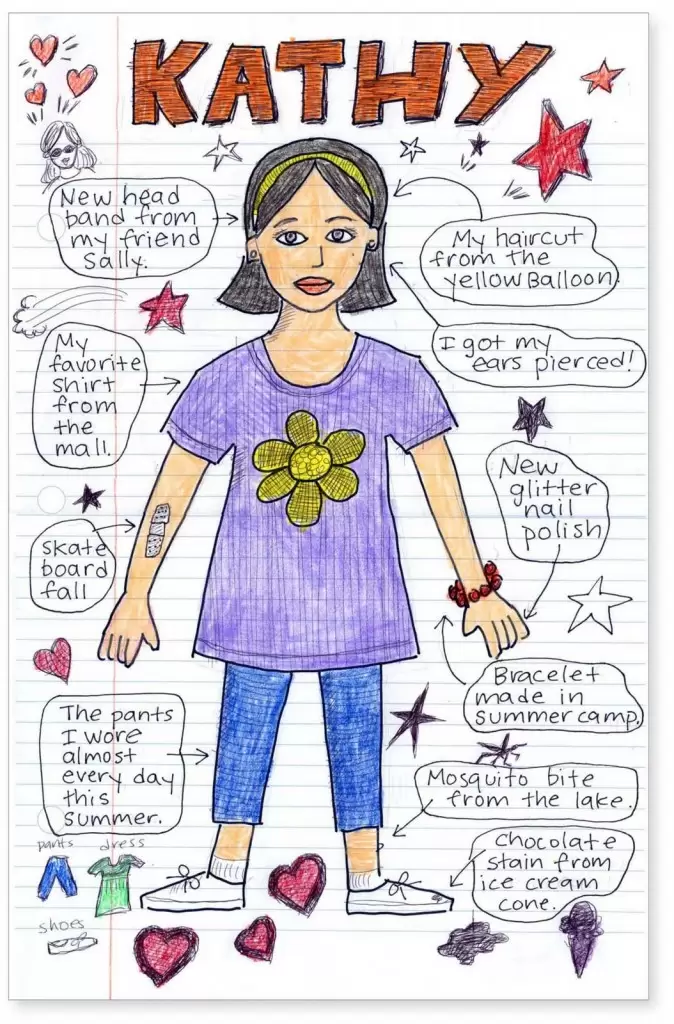 KATHY
New head
band from
my friend
Sally.
My haircut
from the
yellow Balloon.
I got my
ears pierced!
My
favorite
shirt
from
the
mall.
New
glitter
nail
polish
skate
board
fall
Bracelet
made in
summer camp.
The pants
I wore
almost
every day
this
summer.
Mosquito bite
from the lake.
chocolate
stain from
ice cream
cone.
pants
dress
shoes